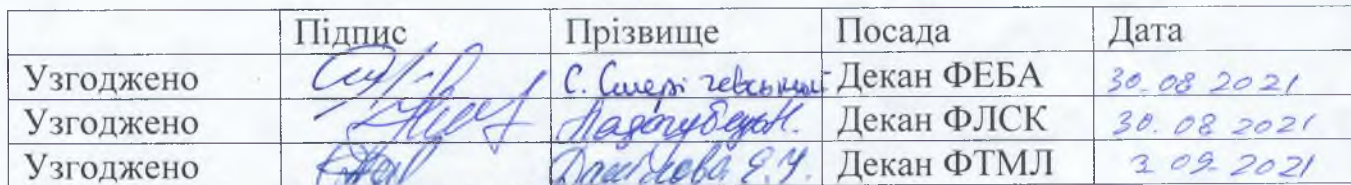 Підпис Прізвище Посада Дата
Узгоджено С. Смерічевський Декан ФЕБА 30.08 2021
Узгоджено Ладогубець Н. Декан ФЛСК 30.08 2021
Узгоджено Декан ФТМЛ 3.09.2021